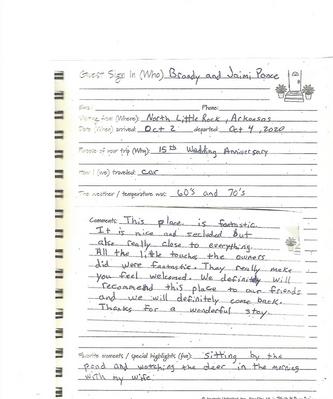 Guest Sign In (Who) Brandy and Jaimi Ponce
Phone:
Visiting from (Where): North Little Rock, Arkansas
Date (When) arrived: Oct 2 departed: Oct 4, 2020
Purpose of your trip (Why): 15th Wedding Anniversary
How I (we) traveled: car
The weather / temperature was: 60's and 70's
Comments: This place is fantastic.
It is nice and secluded but
also really close to everything.
All the little touches the owners
did were fantastic. They really make
you feel welcomed. We definitely will
recommend this place to our friends
and we will definitely come back.
Thanks for a wonderful stay.
Favorite moments / special highlights (fve): Sitting by the
pond and watching the deer in the morning
with my wife